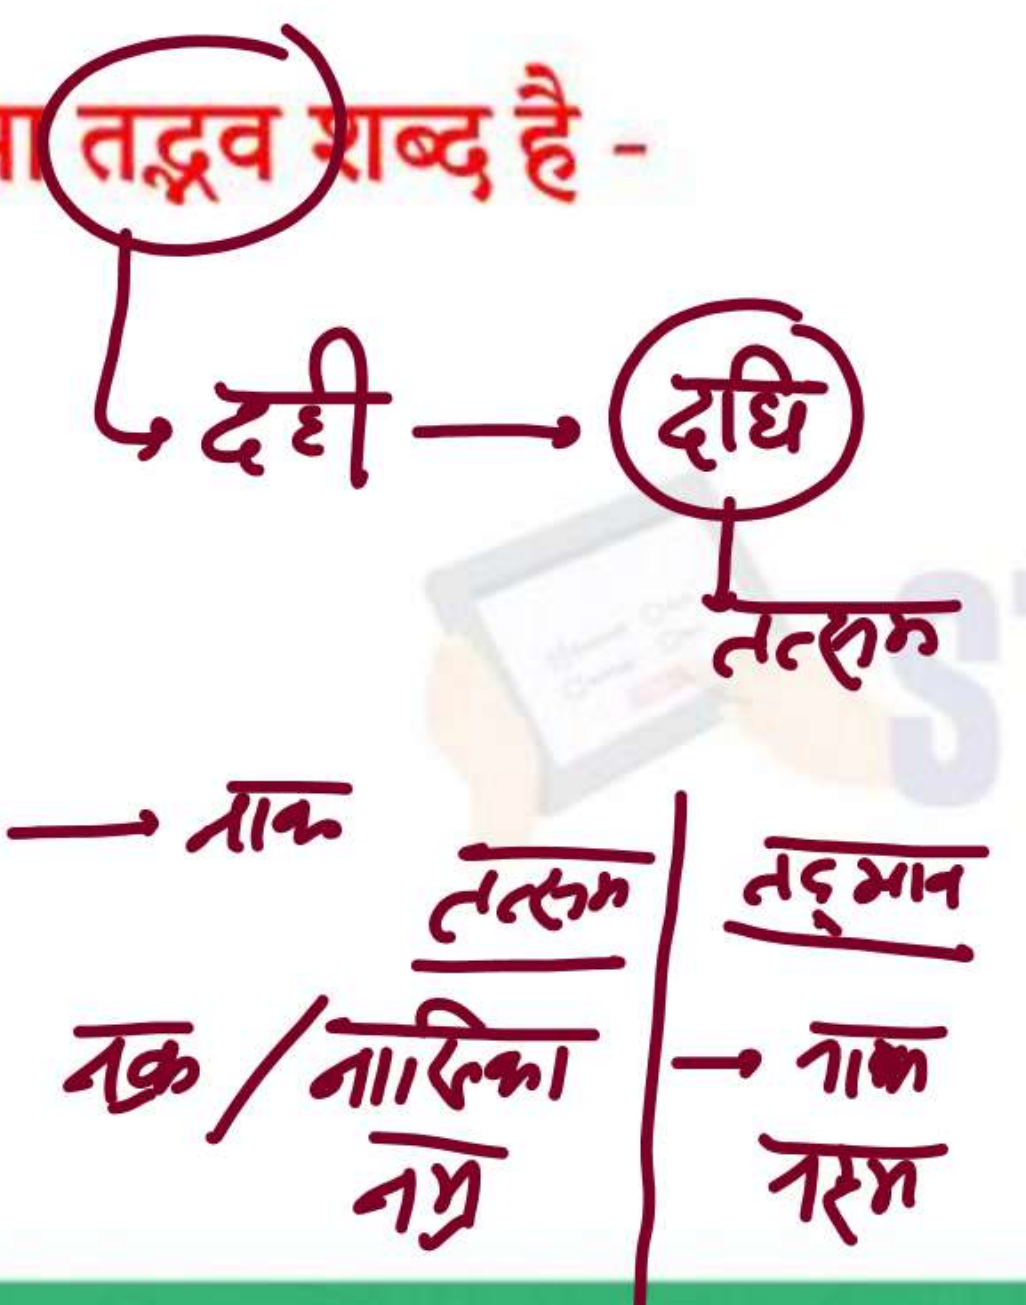 तद्भव शब्द है -
दही → दधि
तत्सम
→ नाक
तत्सम | तद्भाव
नक्क / नासिका → नाक
नम्र नरम